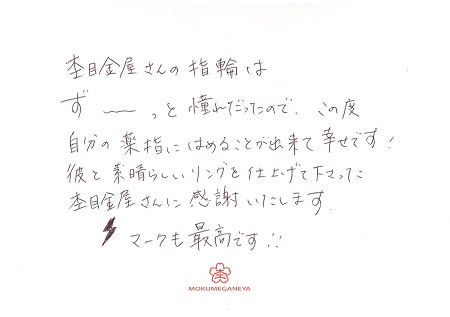 杢目金屋さんの指輪は
ず〜〜っと憧れだったので、この度
自分の薬指にはめることが出来て幸せです!
彼と素晴らしいリングを仕上げて下さった
杢目金屋さんに感謝いたします.
⚡マークも最高です!!
MOKUMEGANEYA